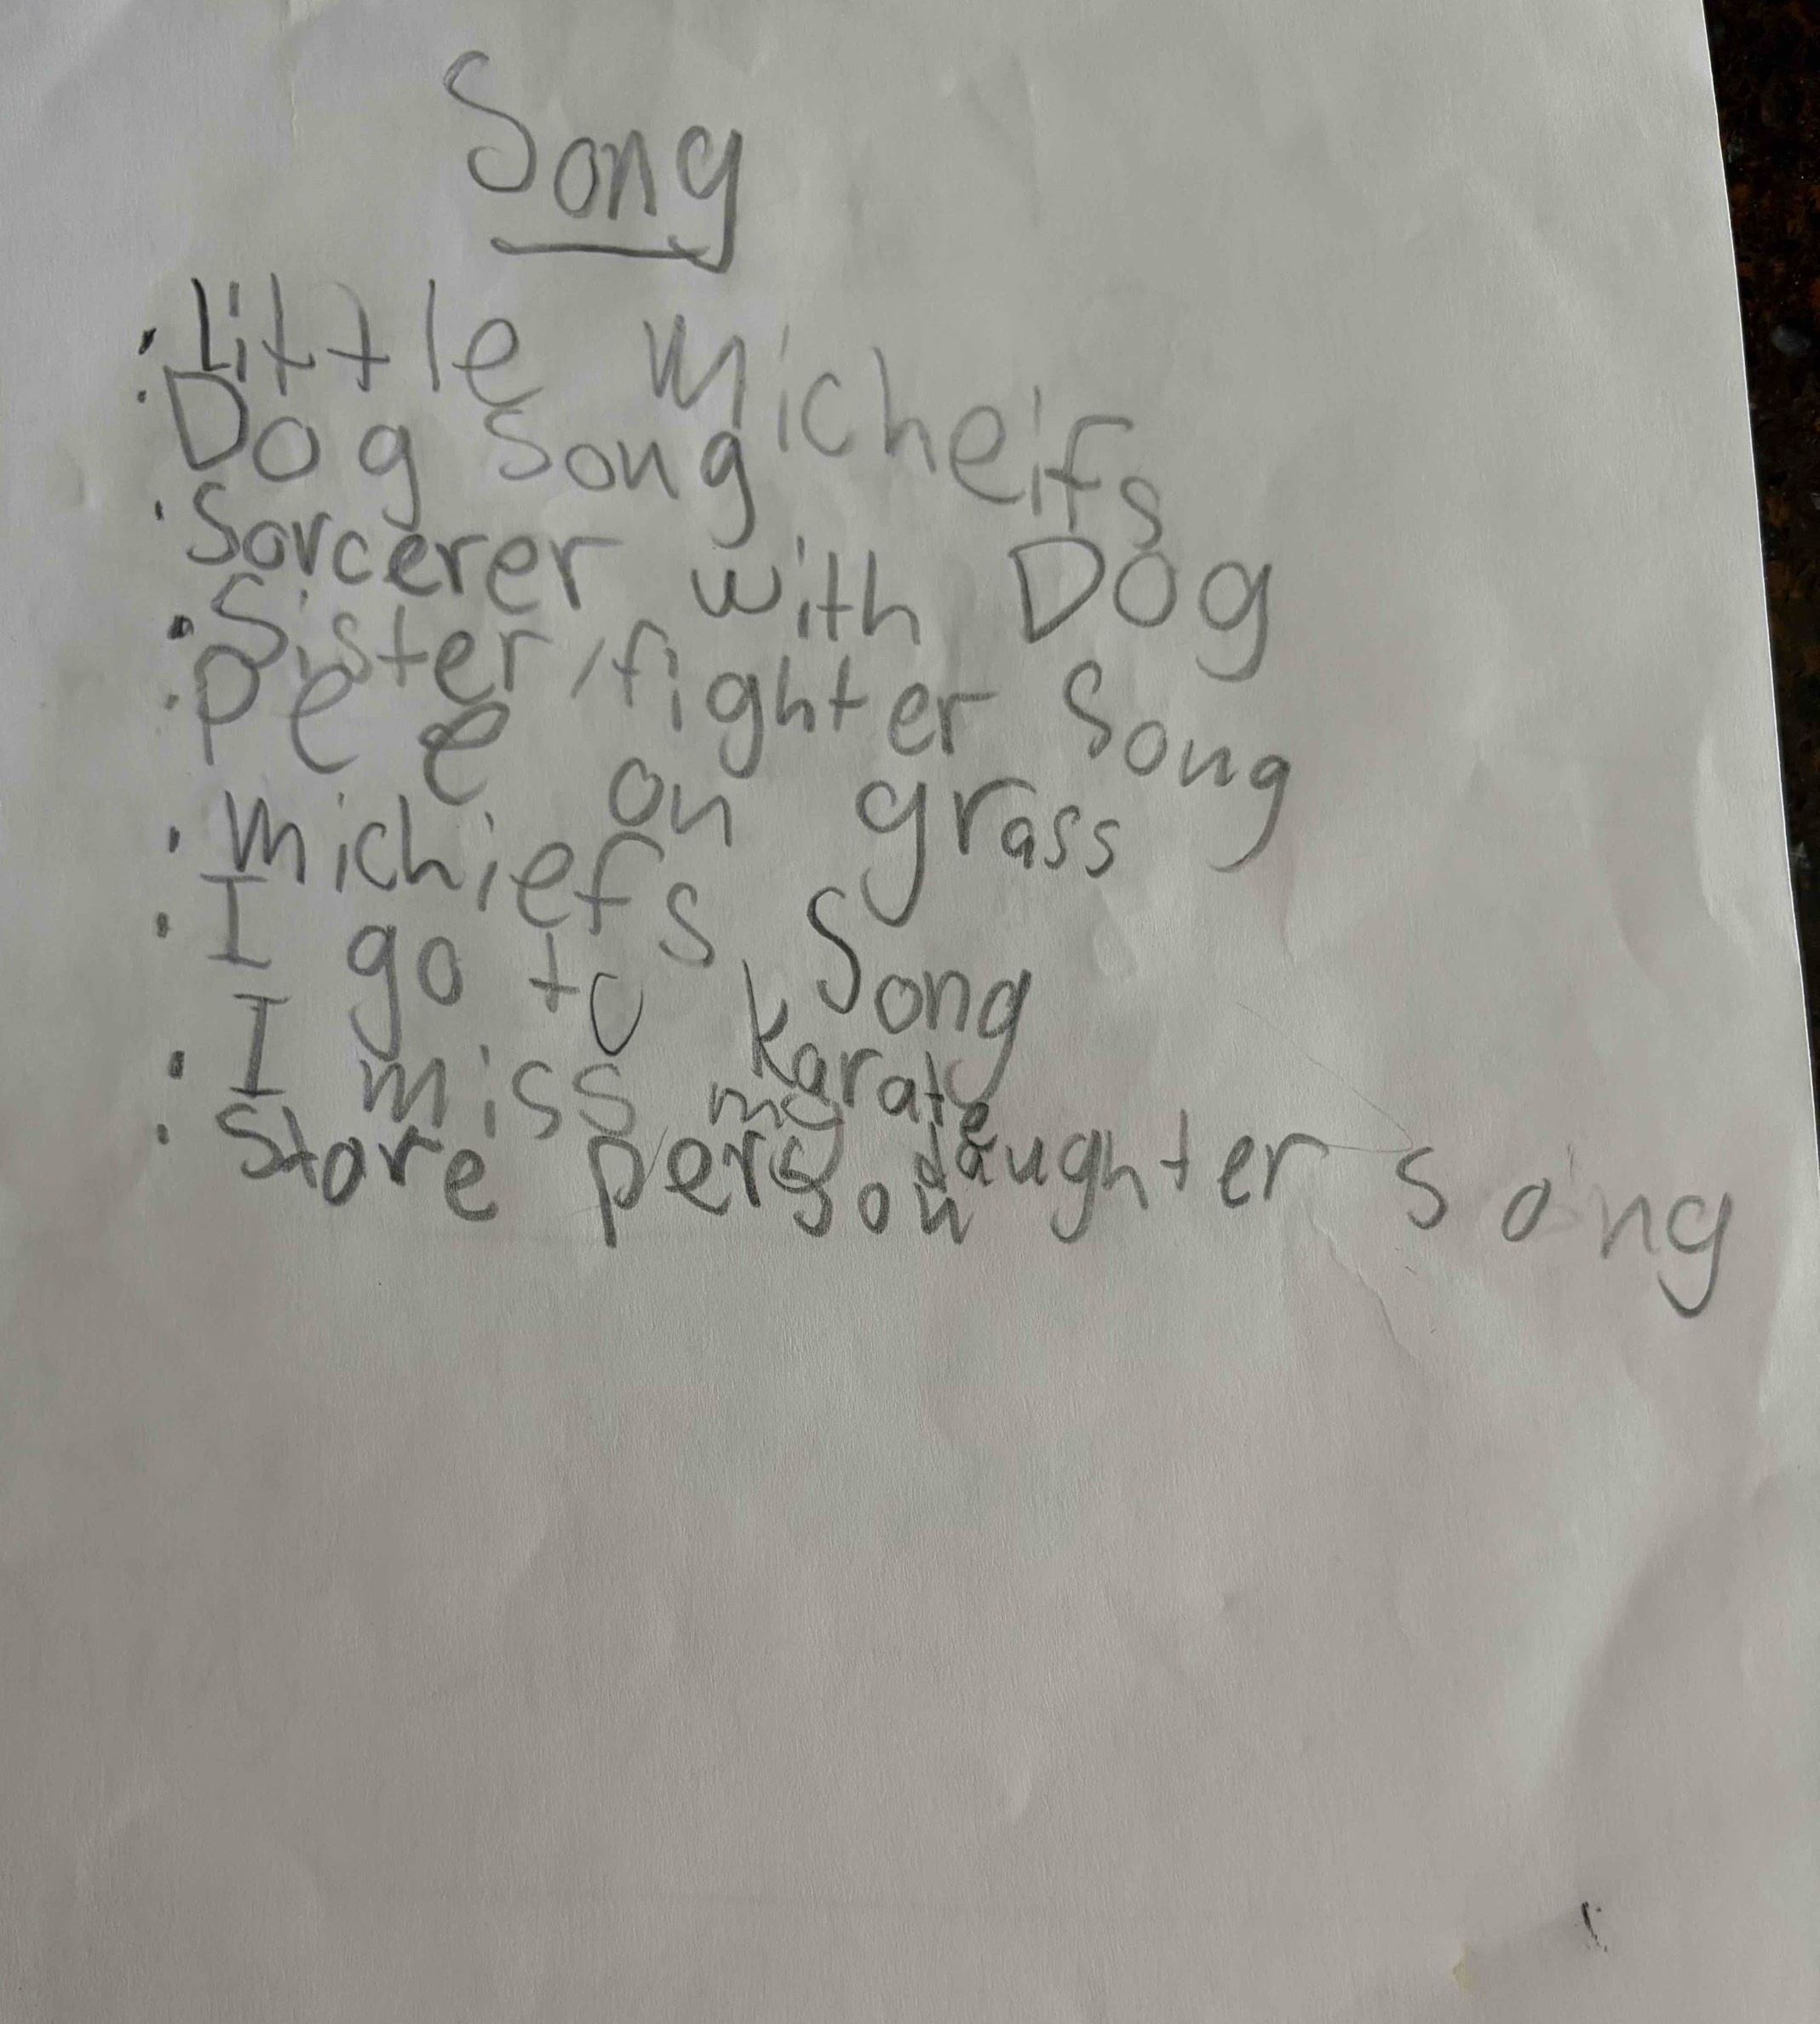 Song
· Little micheifs
· Dog song
· Sorcerer with Dog
· Sister/fighter song
· Pee on grass
· michiefs Song
· I go to karate
· I miss my daughter song
· Store person